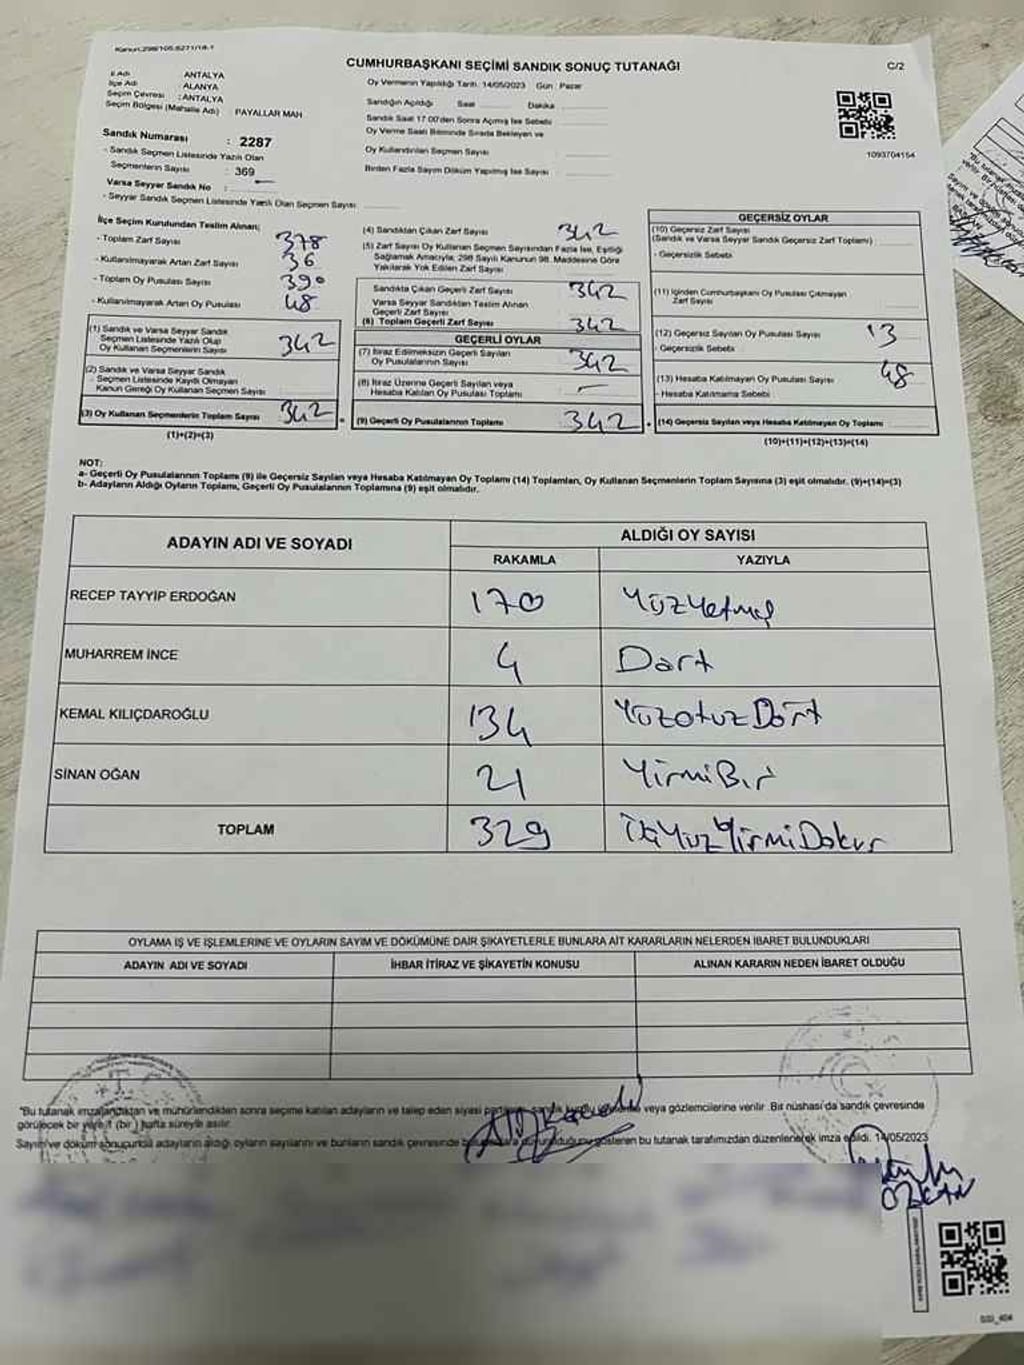 Kanun:298/105.6271/18-1
CUMHURBAŞKANI SEÇİMİ SANDIK SONUÇ TUTANAĞI
C/2
İl Adı ANTALYA
İlçe Adı ALANYA
Seçim Çevresi :ANTALYA
Seçim Bölgesi (Mahalle Adı) : PAYALLAR MAH.
Oy Vermenin Yapıldığı Tarih: 14/05/2023 Gün : Pazar
Sandığın Açıldığı Saat Dakika
Sandık Saat 17:00'den Sonra Açılmış İse Sebebi
Oy Verme Saati Bitiminde Sırada Bekleyen ve
Oy Kullandırılan Seçmen Sayısı
Birden Fazla Sayım Döküm Yapılmış İse Sayısı
1093704154
Sandık Numarası : 2287
- Sandık Seçmen Listesinde Yazılı Olan
Seçmenlerin Sayısı : 369
Varsa Seyyar Sandık No : —
- Seyyar Sandık Seçmen Listesinde Yazılı Olan Seçmen Sayısı
İlçe Seçim Kurulundan Teslim Alınan;
- Toplam Zarf Sayısı 378
- Kullanılmayarak Artan Zarf Sayısı 36
- Toplam Oy Pusulası Sayısı 390
- Kullanılmayarak Artan Oy Pusulası 48
(1) Sandık ve Varsa Seyyar Sandık
Seçmen Listesinde Yazılı Olup
Oy Kullanan Seçmenlerin Sayısı 342
(2) Sandık ve Varsa Seyyar Sandık
Seçmen Listesinde Kayıtlı Olmayan
Kanun Gereği Oy Kullanan Seçmen Sayısı
(3) Oy Kullanan Seçmenlerin Toplam Sayısı 342
(1)+(2)=(3)
(4) Sandıktan Çıkan Zarf Sayısı 342
(5) Zarf Sayısı Oy Kullanan Seçmen Sayısından Fazla İse, Eşitliği
Sağlamak Amacıyla, 298 Sayılı Kanunun 98. Maddesine Göre
Yakılarak Yok Edilen Zarf Sayısı
Sandıkta Çıkan Geçerli Zarf Sayısı 342
Varsa Seyyar Sandıktan Teslim Alınan
Geçerli Zarf Sayısı
(6) Toplam Geçerli Zarf Sayısı 342
GEÇERLİ OYLAR
(7) İtiraz Edilmeksizin Geçerli Sayılan
Oy Pusulalarının Sayısı 342
(8) İtiraz Üzerine Geçerli Sayılan veya
Hesaba Katılan Oy Pusulası Toplamı —
(9) Geçerli Oy Pusulalarının Toplamı 342
GEÇERSİZ OYLAR
(10) Geçersiz Zarf Sayısı
(Sandık ve Varsa Seyyar Sandık Geçersiz Zarf Toplamı)
- Geçersizlik Sebebi
(11) İçinden Cumhurbaşkanı Oy Pusulası Çıkmayan
Zarf Sayısı
(12) Geçersiz Sayılan Oy Pusulası Sayısı 13
- Geçersizlik Sebebi
(13) Hesaba Katılmayan Oy Pusulası Sayısı 48
- Hesaba Katılmama Sebebi
(14) Geçersiz Sayılan veya Hesaba Katılmayan Oy Toplamı
(10)+(11)+(12)+(13)=(14)
NOT:
a- Geçerli Oy Pusulalarının Toplamı (9) ile Geçersiz Sayılan veya Hesaba Katılmayan Oy Toplamı (14) Toplamları, Oy Kullanan Seçmenlerin Toplam Sayısına (3) eşit olmalıdır. (9)+(14)=(3)
b- Adayların Aldığı Oyların Toplamı, Geçerli Oy Pusulalarının Toplamına (9) eşit olmalıdır.
ADAYIN ADI VE SOYADI
ALDIĞI OY SAYISI
RAKAMLA YAZIYLA
RECEP TAYYİP ERDOĞAN 170 Yüzyetmiş
MUHARREM İNCE 4 Dört
KEMAL KILIÇDAROĞLU 134 YüzotuzDört
SİNAN OĞAN 21 YirmiBir
TOPLAM 329 İkiYüzYirmiDokuz
OYLAMA İŞ VE İŞLEMLERİNE VE OYLARIN SAYIM VE DÖKÜMÜNE DAİR ŞİKAYETLERLE BUNLARA AİT KARARLARIN NELERDEN İBARET BULUNDUKLARI
ADAYIN ADI VE SOYADI İHBAR İTİRAZ VE ŞİKAYETİN KONUSU ALINAN KARARIN NEDEN İBARET OLDUĞU
"Bu tutanak imzalandıktan ve mühürlendikten sonra seçime katılan adayların ve talep eden siyasi veya gözlemcilerine verilir. Bir nüshası da sandık çevresinde
görülecek bir yere 1 (bir ) hafta süreyle asılır.
Sayım ve döküm sonuçunda adayların aldığı oyların sayılarını ve bunların sandık çevresinde gösteren bu tutanak tarafımızdan düzenlenerek imza edildi. 14/05/2023
ÖZKAN